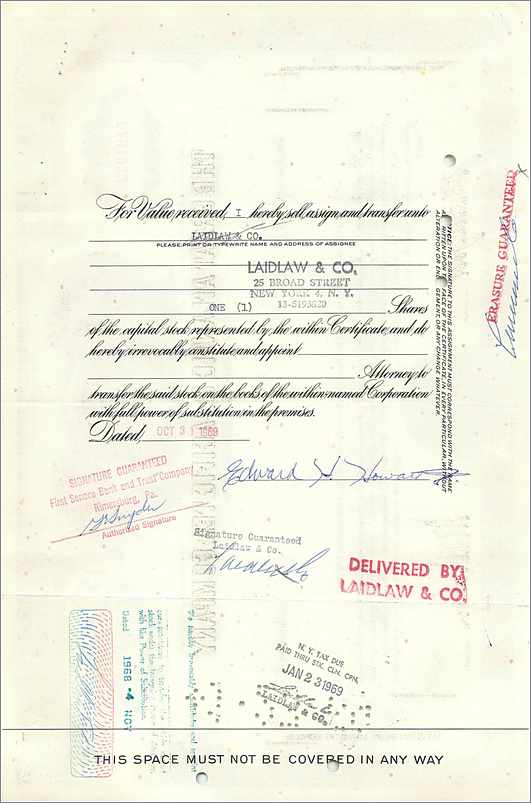 For Value received, I hereby sell, assign and transfer unto
LAIDLAW & CO.
PLEASE PRINT OR TYPEWRITE NAME AND ADDRESS OF ASSIGNEE
LAIDLAW & CO.
25 BROAD STREET
NEW YORK 4, N. Y.
13-5193820
ONE (1) Shares
of the capital stock represented by the within Certificate, and do
hereby irrevocably constitute and appoint
Attorney to
transfer the said stock on the books of the within-named Corporation
with full power of substitution in the premises.
Dated, OCT 31 1969
NOTICE: THE SIGNATURE TO THIS ASSIGNMENT MUST CORRESPOND WITH THE NAME
WRITTEN UPON FACE OF THE CERTIFICATE, IN EVERY PARTICULAR, WITHOUT
ALTERATION OR ANY CHANGE WHATEVER.
ERASURE GUARANTEED
Edward H. Howard
SIGNATURE GUARANTEED
First Seneca Bank and Trust Company
Rimersburg, Pa.
Authorized Signature
Signature Guaranteed
Laidlaw & Co.
Laidlaw & Co
DELIVERED BY
LAIDLAW & CO.
N. Y. TAX DUE
PAID THRU STK. CLR. CPN.
JAN 23 1969
LAIDLAW & CO.
Dated 1968 - 4 NOV
THIS SPACE MUST NOT BE COVERED IN ANY WAY